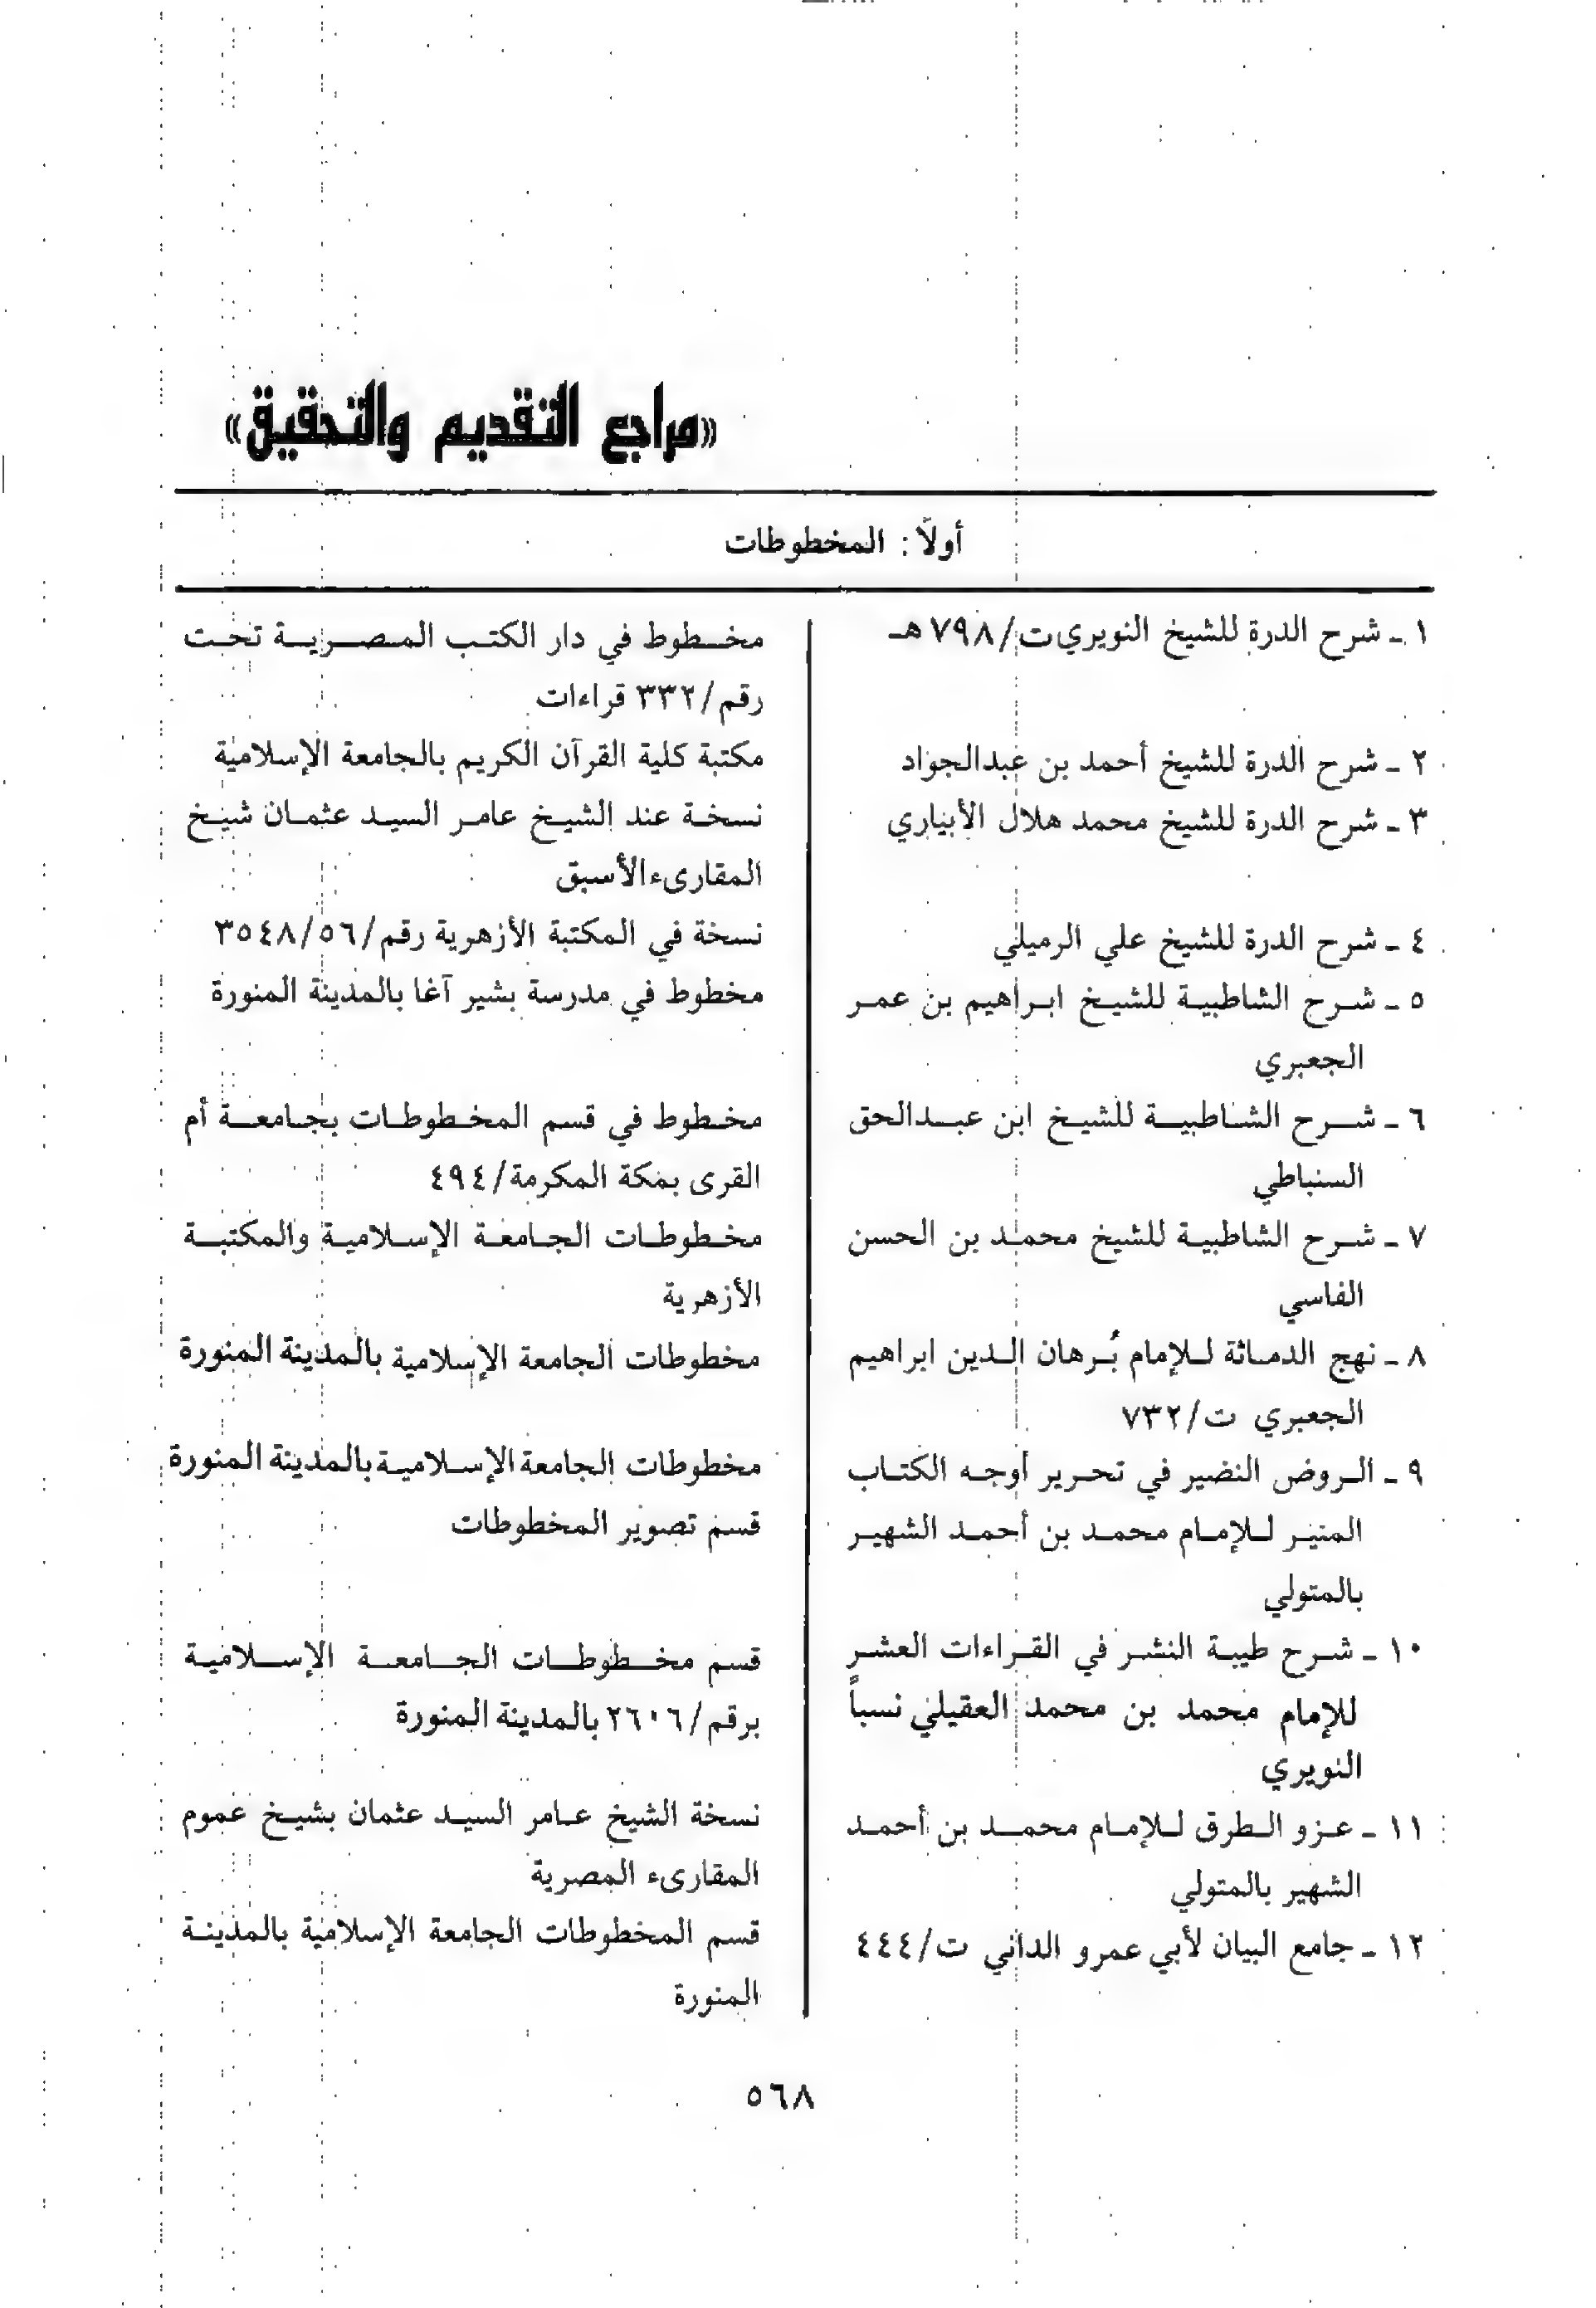 «مراجع التقديم والتحقيق»
أولاً: المخطوطات
١ - شرح الدرة للشيخ النويري ت/٧٩٨هـ
مخطوط في دار الكتب المصرية تحت
رقم/٣٣٢ قراءات
٢ - شرح الدرة للشيخ أحمد بن عبدالجواد
مكتبة كلية القرآن الكريم بالجامعة الإسلامية
٣ - شرح الدرة للشيخ محمد هلال الأبياري
نسخة عند الشيخ عامر السيد عثمان شيخ
المقارىء الأسبق
٤ - شرح الدرة للشيخ علي الرميلي
نسخة في المكتبة الأزهرية رقم/٣٥٤٨/٥٦
٥ - شرح الشاطبية للشيخ ابراهيم بن عمر
الجعبري
مخطوط في مدرسة بشير آغا بالمدينة المنورة
٦ - شرح الشاطبية للشيخ ابن عبدالحق
السنباطي
مخطوط في قسم المخطوطات بجامعة أم
القرى بمكة المكرمة/٤٩٤
٧ - شرح الشاطبية للشيخ محمد بن الحسن
الفاسي
مخطوطات الجامعة الإسلامية والمكتبة
الأزهرية
٨ - نهج الدماثة للإمام بُرهان الدين ابراهيم
الجعبري ت/٧٣٢
مخطوطات الجامعة الإسلامية بالمدينة المنورة
٩ - الروض النضير في تحرير أوجه الكتاب
المنير للإمام محمد بن أحمد الشهير
بالمتولي
مخطوطات الجامعة الإسلامية بالمدينة المنورة
قسم تصوير المخطوطات
١٠ - شرح طيبة النشر في القراءات العشر
للإمام محمد بن محمد العقيلي نسباً
النويري
قسم مخطوطات الجامعة الإسلامية
برقم/٢٦٠٦ بالمدينة المنورة
١١ - عزو الطرق للإمام محمد بن أحمد
الشهير بالمتولي
نسخة الشيخ عامر السيد عثمان بشيخ عموم
المقارىء المصرية
١٢ - جامع البيان لأبي عمرو الداني ت/٤٤٤
قسم المخطوطات الجامعة الإسلامية بالمدينة
المنورة
٥٦٨